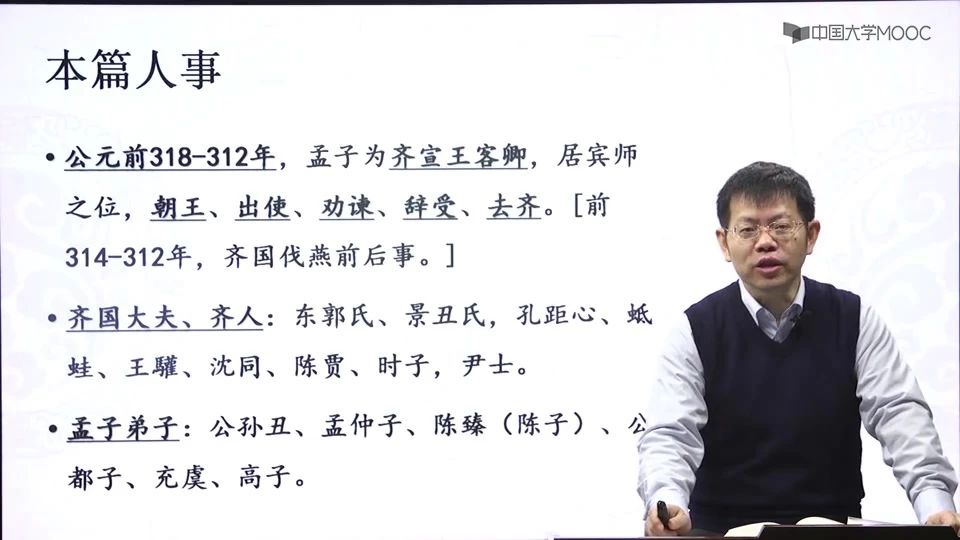 中国大学MOOC
本篇人事
• 公元前318-312年，孟子为齐宣王客卿，居宾师
之位，朝王、出使、劝谏、辞受、去齐。[前
314-312年，齐国伐燕前后事。]
• 齐国大夫、齐人：东郭氏、景丑氏，孔距心、蚳
蛙、王驩、沈同、陈贾、时子，尹士。
• 孟子弟子：公孙丑、孟仲子、陈臻（陈子）、公
都子、充虞、高子。